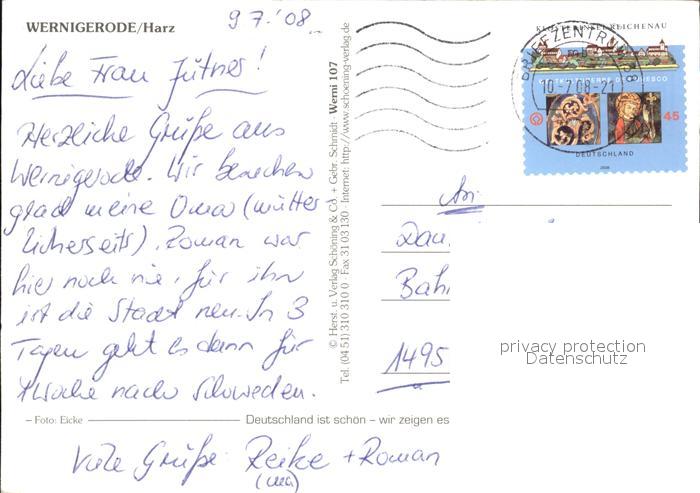 WERNIGERODE/Harz
9 7.'08
Liebe Frau Jütner!
Herzliche Grüße aus
Wernigerode. Wir besuchen
grad meine Oma (mütter
licherseits). Roman war
hier noch nie, für ihn
ist die Stadt neu. In 3
Tagen geht es dann für
1 Woche nach Schweden.
Viele Grüße Reike + Roman
– Foto: Eicke
Deutschland ist schön – wir zeigen es
© Herst. u. Verlag Schöning & Co. + Gebr. Schmidt Werni 107
Tel. (04 51) 310 310 0 · Fax 31 03 130 · Internet: http://www.schoening-verlag.de
KLOSTERINSEL REICHENAU
BRIEFZENTRUM
10-7 08-21
UNESCO
45
DEUTSCHLAND
2008
An
Dau
Bah
1495
privacy protection
Datenschutz